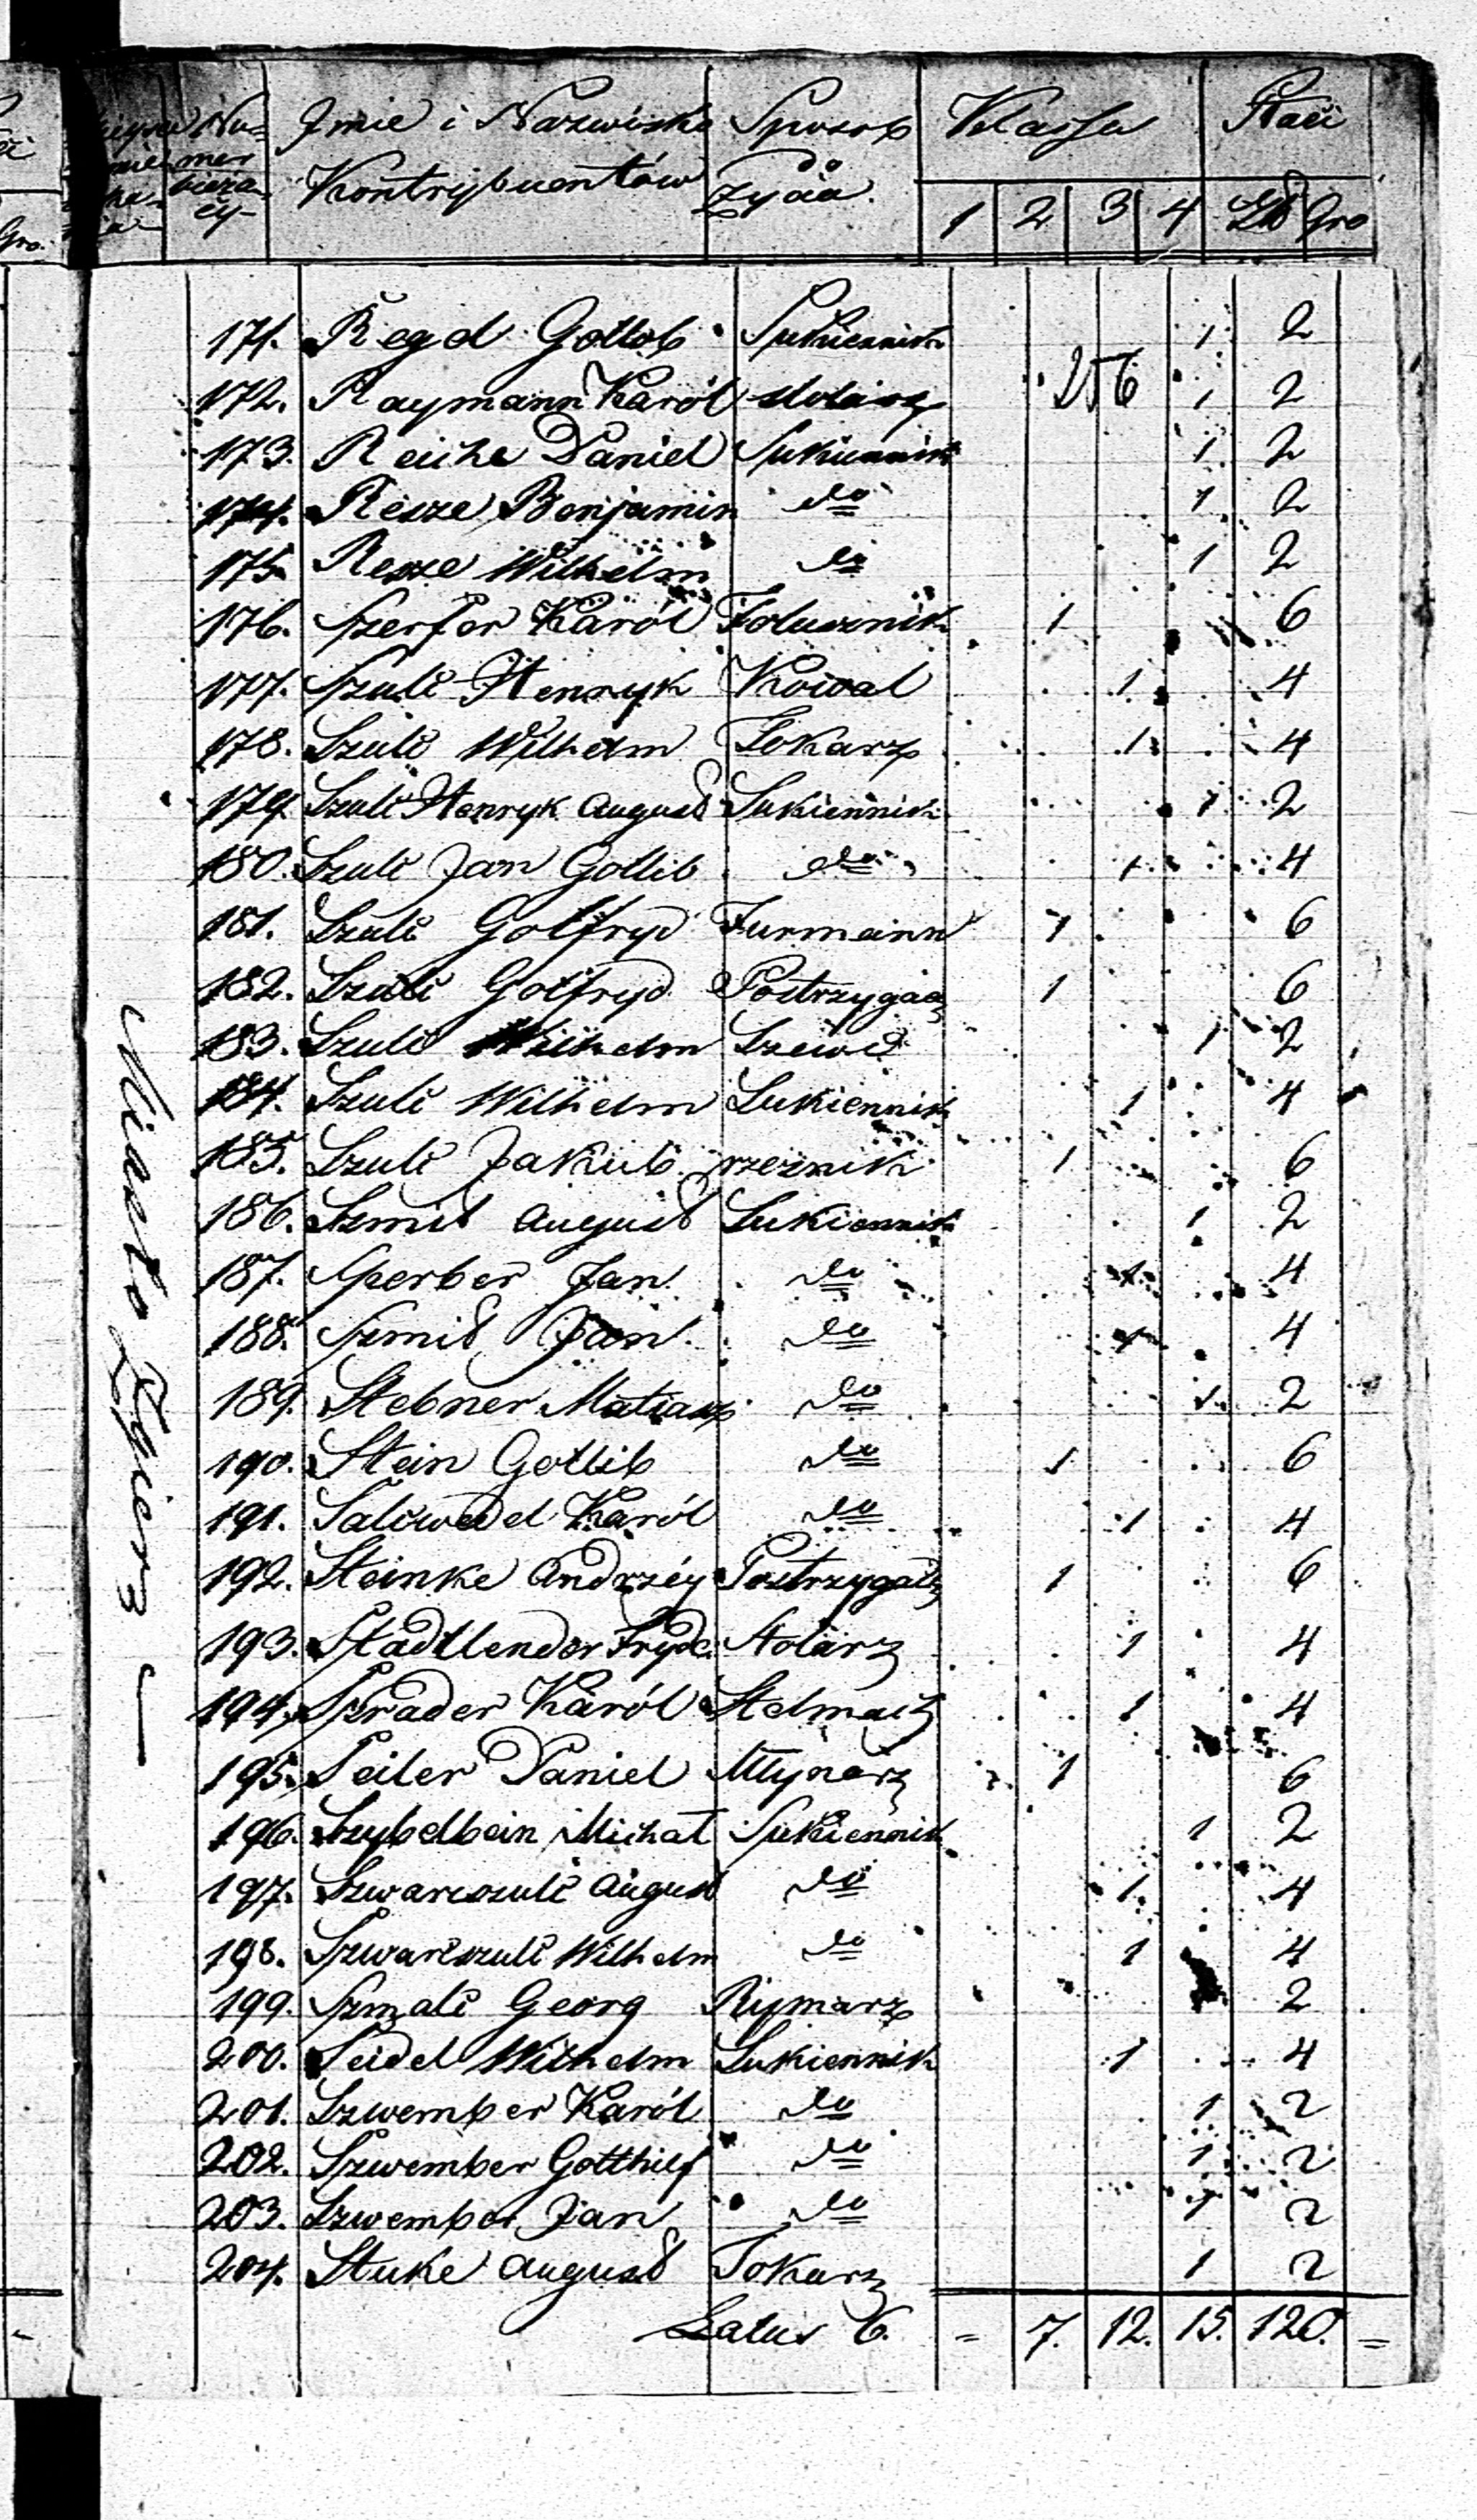 Nu= Imie i Nazwisko Sposob Klassa Płaci
mer
bieżą- Kontrybuentów do
cy- życia. 1 2 3 4 Zł Gro
Gro.
171. Regd Gottlob Sukiennik 1 2
256
172. Raymann Karól stolarz 1 2
173. Reiche Daniel Sukiennik 1 2
174. Resze Benjamin do 1 2
175. Resze Wilhelm do 1 2
176. Szerfer Karól Folusznik 1 6
177. Szulc Henryk Kowal 1 4
178. Szulc Wilhelm Tokarz 1 4
179. Szulc Henryk August Sukiennik 1 2
180. Szulc Jan Gotlib do 1 4
181. Szulc Gotfryd Furmann 1 6
182. Szulc Gotfryd Postrzygacz 1 6
183. Szulc Wilhelm Szewc 1 2
184. Szulc Wilhelm Sukiennik 1 4
185. Szulc Jakub rzeznik 1 6
186. Szmit August Sukiennik 1 2
187. Sperber Jan do 1 4
188. Szmit Jan do 1 4
189. Stebner Matiasz do 1 2
190. Stein Gottlib do 1 6
191. Salcwedel Karól do 1 4
192. Steinke Andrzéy Postrzygacz 1 6
193. Stadtlender Fryd. stolarz 1 4
194. Szrader Karól Stelmach 1 4
195. Seiler Daniel Młynarz 1 6
196. Szybelbein Michał Sukiennik 1 2
197. Szwarcszulc August do 1 4
198. Szwarcszulc Wilhelm do 1 4
199. Szmalc Georg Rymarz 2
200. Seidel Wilhelm Sukiennik 1 4
201. Szwember Karól do 1 2
202. Szwember Gotthilf do 1 2
203. Szwember Jan do 1 2
204. Stuke August Tokarz 1 2
Latus 6. = 7. 12. 15. 120. =
Miasto Zgierz —